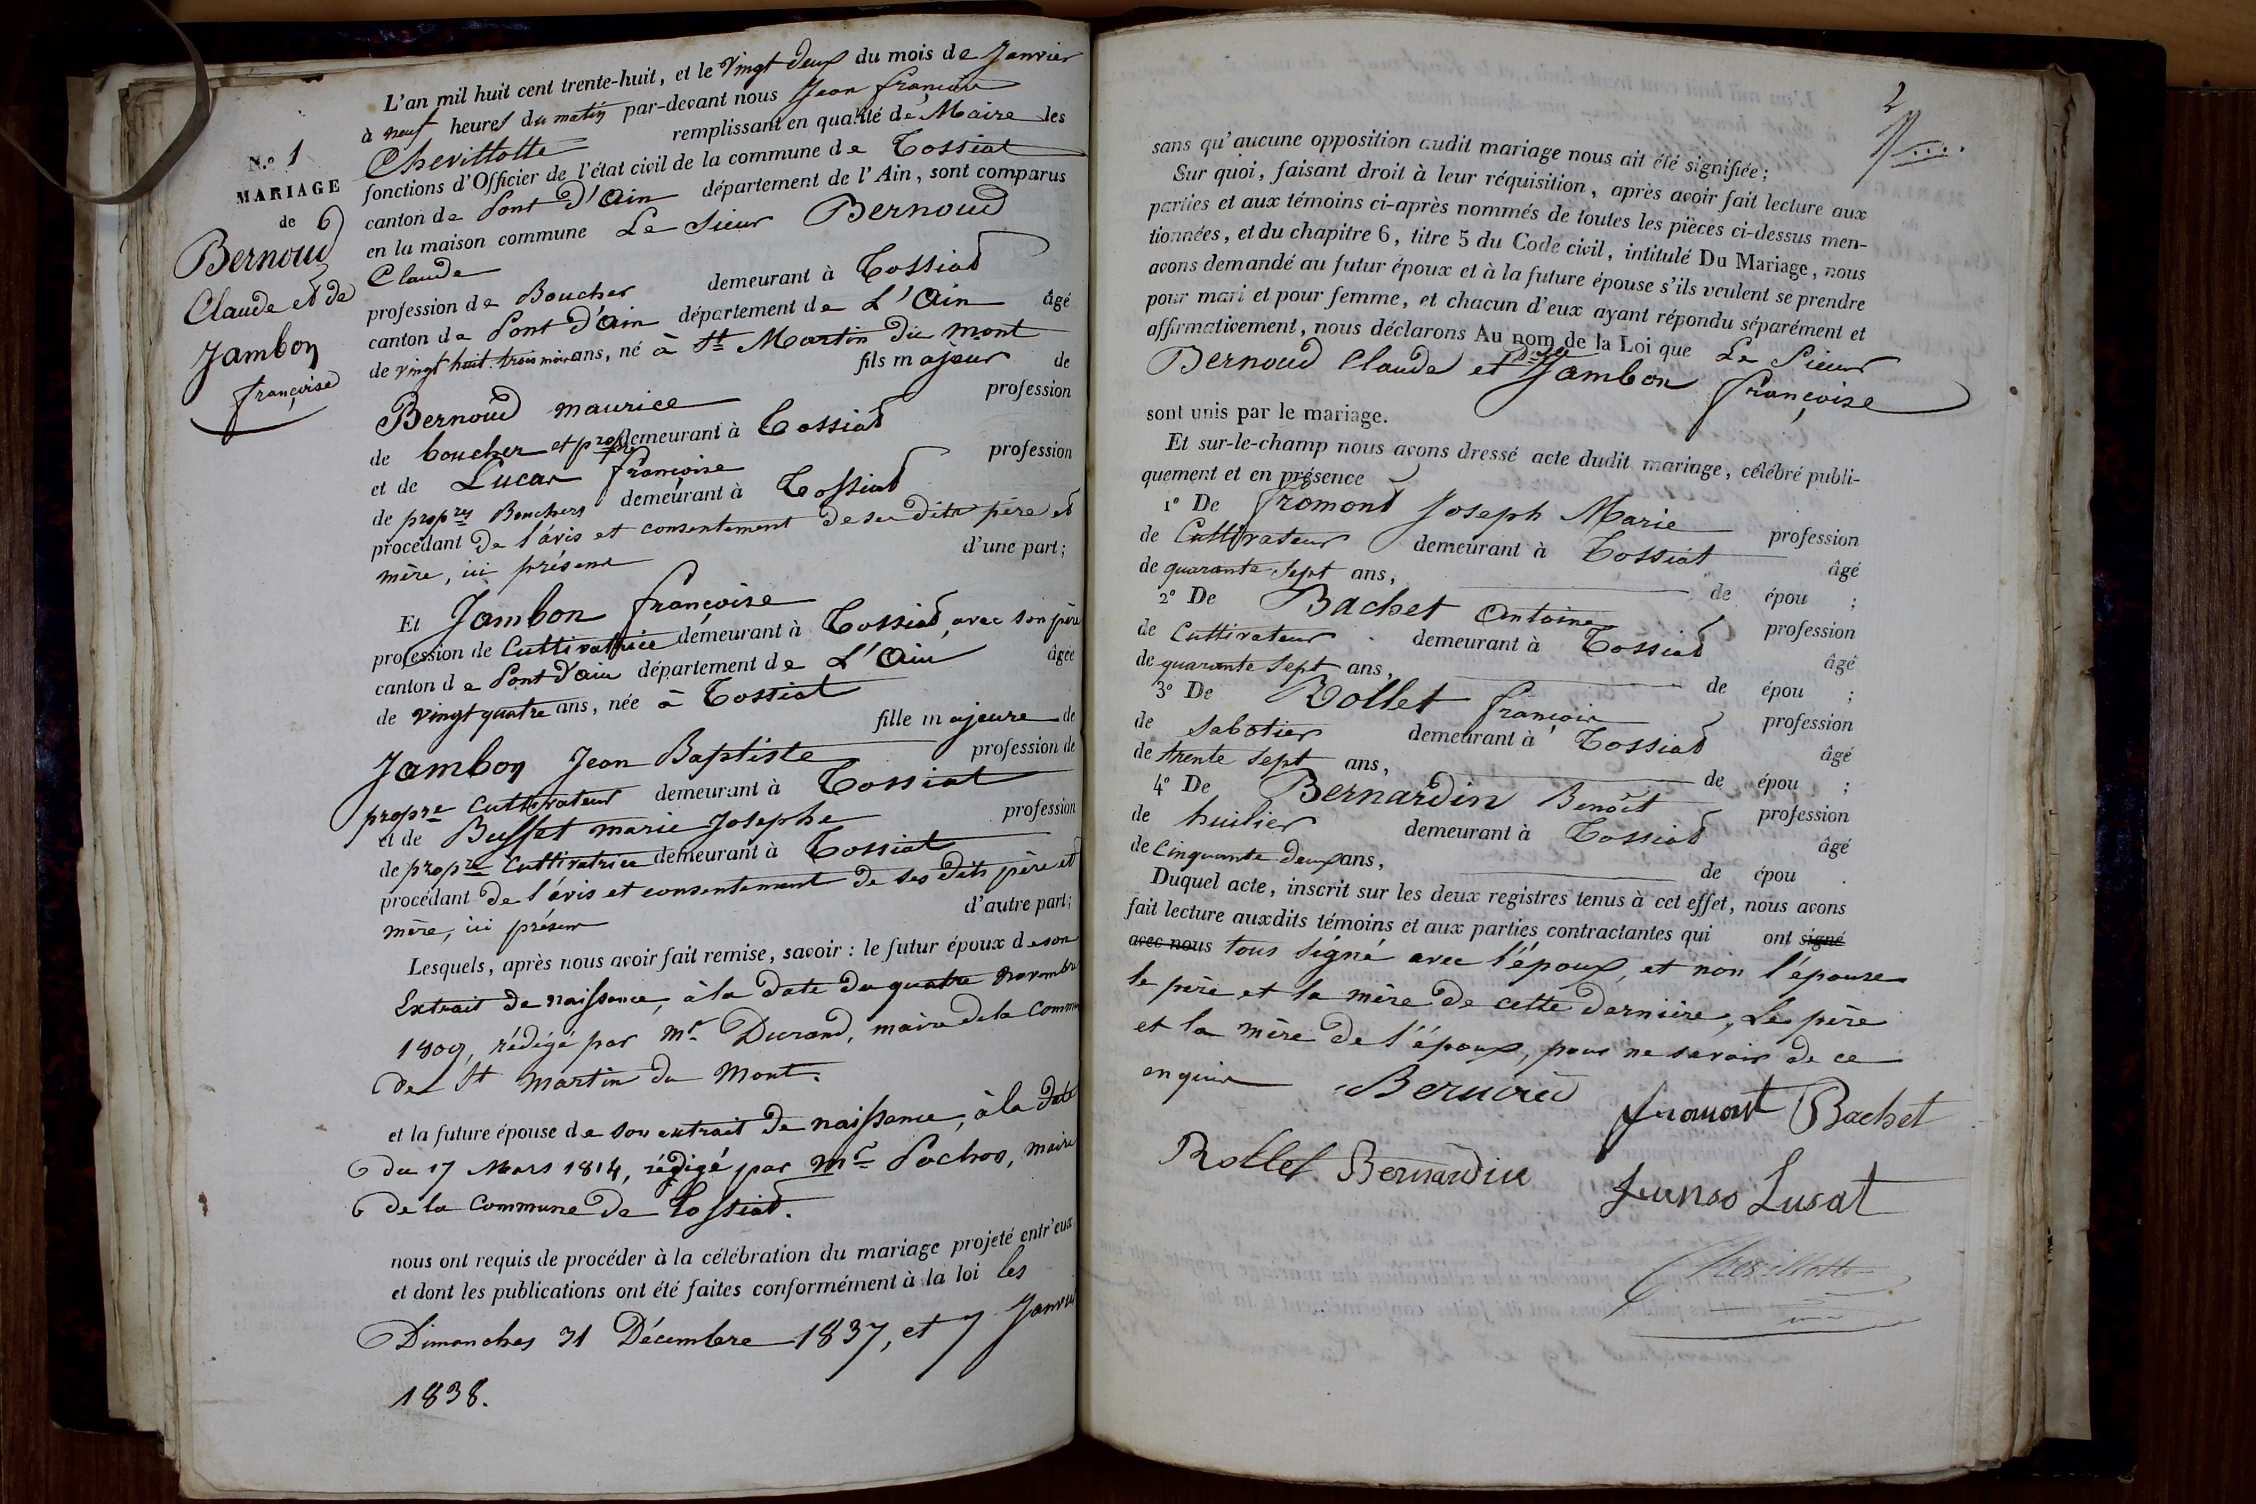 N.o 1
MARIAGE
de
Bernoud
Claude et de
Jambon
françoise
L'an mil huit cent trente-huit, et le vingt deux du mois de Janvier
à neuf heures du matin par-devant nous Jean françois
Chevillotte remplissant en qualité de Maire les
fonctions d'Officier de l'état civil de la commune de Tossiat
canton de Pont d'Ain département de l'Ain, sont comparus
en la maison commune Le Sieur Bernoud
Claude
profession de Boucher demeurant à Tossiat
canton de Pont d'Ain département de L'Ain âgé
de vingt huit trois mois ans, né à St Martin du mont
fils majeur de
Bernoud maurice profession
de boucher et propre demeurant à Tossiat
et de Lucas françoise profession
de propres Bouchers demeurant à Tossiat
procédant de l'avis et consentement de ses dits père et
mère, ici présens d'une part;
Et Jambon françoise
profession de Cultivatrice demeurant à Tossiat, avec son père
canton de Pont d'ain département de L'Ain âgée
de vingt quatre ans, née à Tossiat
fille majeure de
Jambon Jean Baptiste profession de
propre cultivateur demeurant à Tossiat
et de Buffet marie Josephe profession
de propre Cultivatrice demeurant à Tossiat
procédant de l'avis et consentement de ses dits père et
mère, ici présens d'autre part;
Lesquels, après nous avoir fait remise, savoir : le futur époux de son
Extrait de naissance, à la date du quatre novembre
1809, rédigé par mr Durand, maire de la Commune
de St martin du Mont.
et la future épouse de son extrait de naissance, à la date
du 17 Mars 1814, rédigé par mr Pochon, maire
de la Commune de Tossiat.
nous ont requis de procéder à la célébration du mariage projeté entr'eux
et dont les publications ont été faites conformément à la loi les
Dimanches 31 Décembre 1837, et 7 Janvier
1838.
2
sans qu'aucune opposition audit mariage nous ait été signifiée;
Sur quoi, faisant droit à leur réquisition, après avoir fait lecture aux
parties et aux témoins ci-après nommés de toutes les pièces ci-dessus men-
tionnées, et du chapitre 6, titre 5 du Code civil, intitulé Du Mariage, nous
avons demandé au futur époux et à la future épouse s'ils veulent se prendre
pour mari et pour femme, et chacun d'eux ayant répondu séparément et
affirmativement, nous déclarons Au nom de la Loi que Le Sieur
Bernoud Claude et Dlle Jambon françoise
sont unis par le mariage.
Et sur-le-champ nous avons dressé acte dudit mariage, célébré publi-
quement et en présence
1º De fromont Joseph Marie profession
de Cultivateur demeurant à Tossiat âgé
de quarante sept ans, de épou ;
2º De Bachet Antoine profession
de cultivateur demeurant à Tossiat âgé
de quarante sept ans, de épou ;
3º De Rollet françois profession
de sabotier demeurant à Tossiat âgé
de trente sept ans, de épou ;
4º De Bernardin Benoît profession
de huilier demeurant à Tossiat âgé
de Cinquante deux ans, de épou .
Duquel acte, inscrit sur les deux registres tenus à cet effet, nous avons
fait lecture auxdits témoins et aux parties contractantes qui ont signé
avec nous tous signé avec l'époux, et non l'épouse
le père et la mère de cette dernière, Le père
et la mère de l'époux, pour ne savoir de ce
enquis Bernoud fromont Bachet
Rollet Bernardin Lusat
Chevillotte